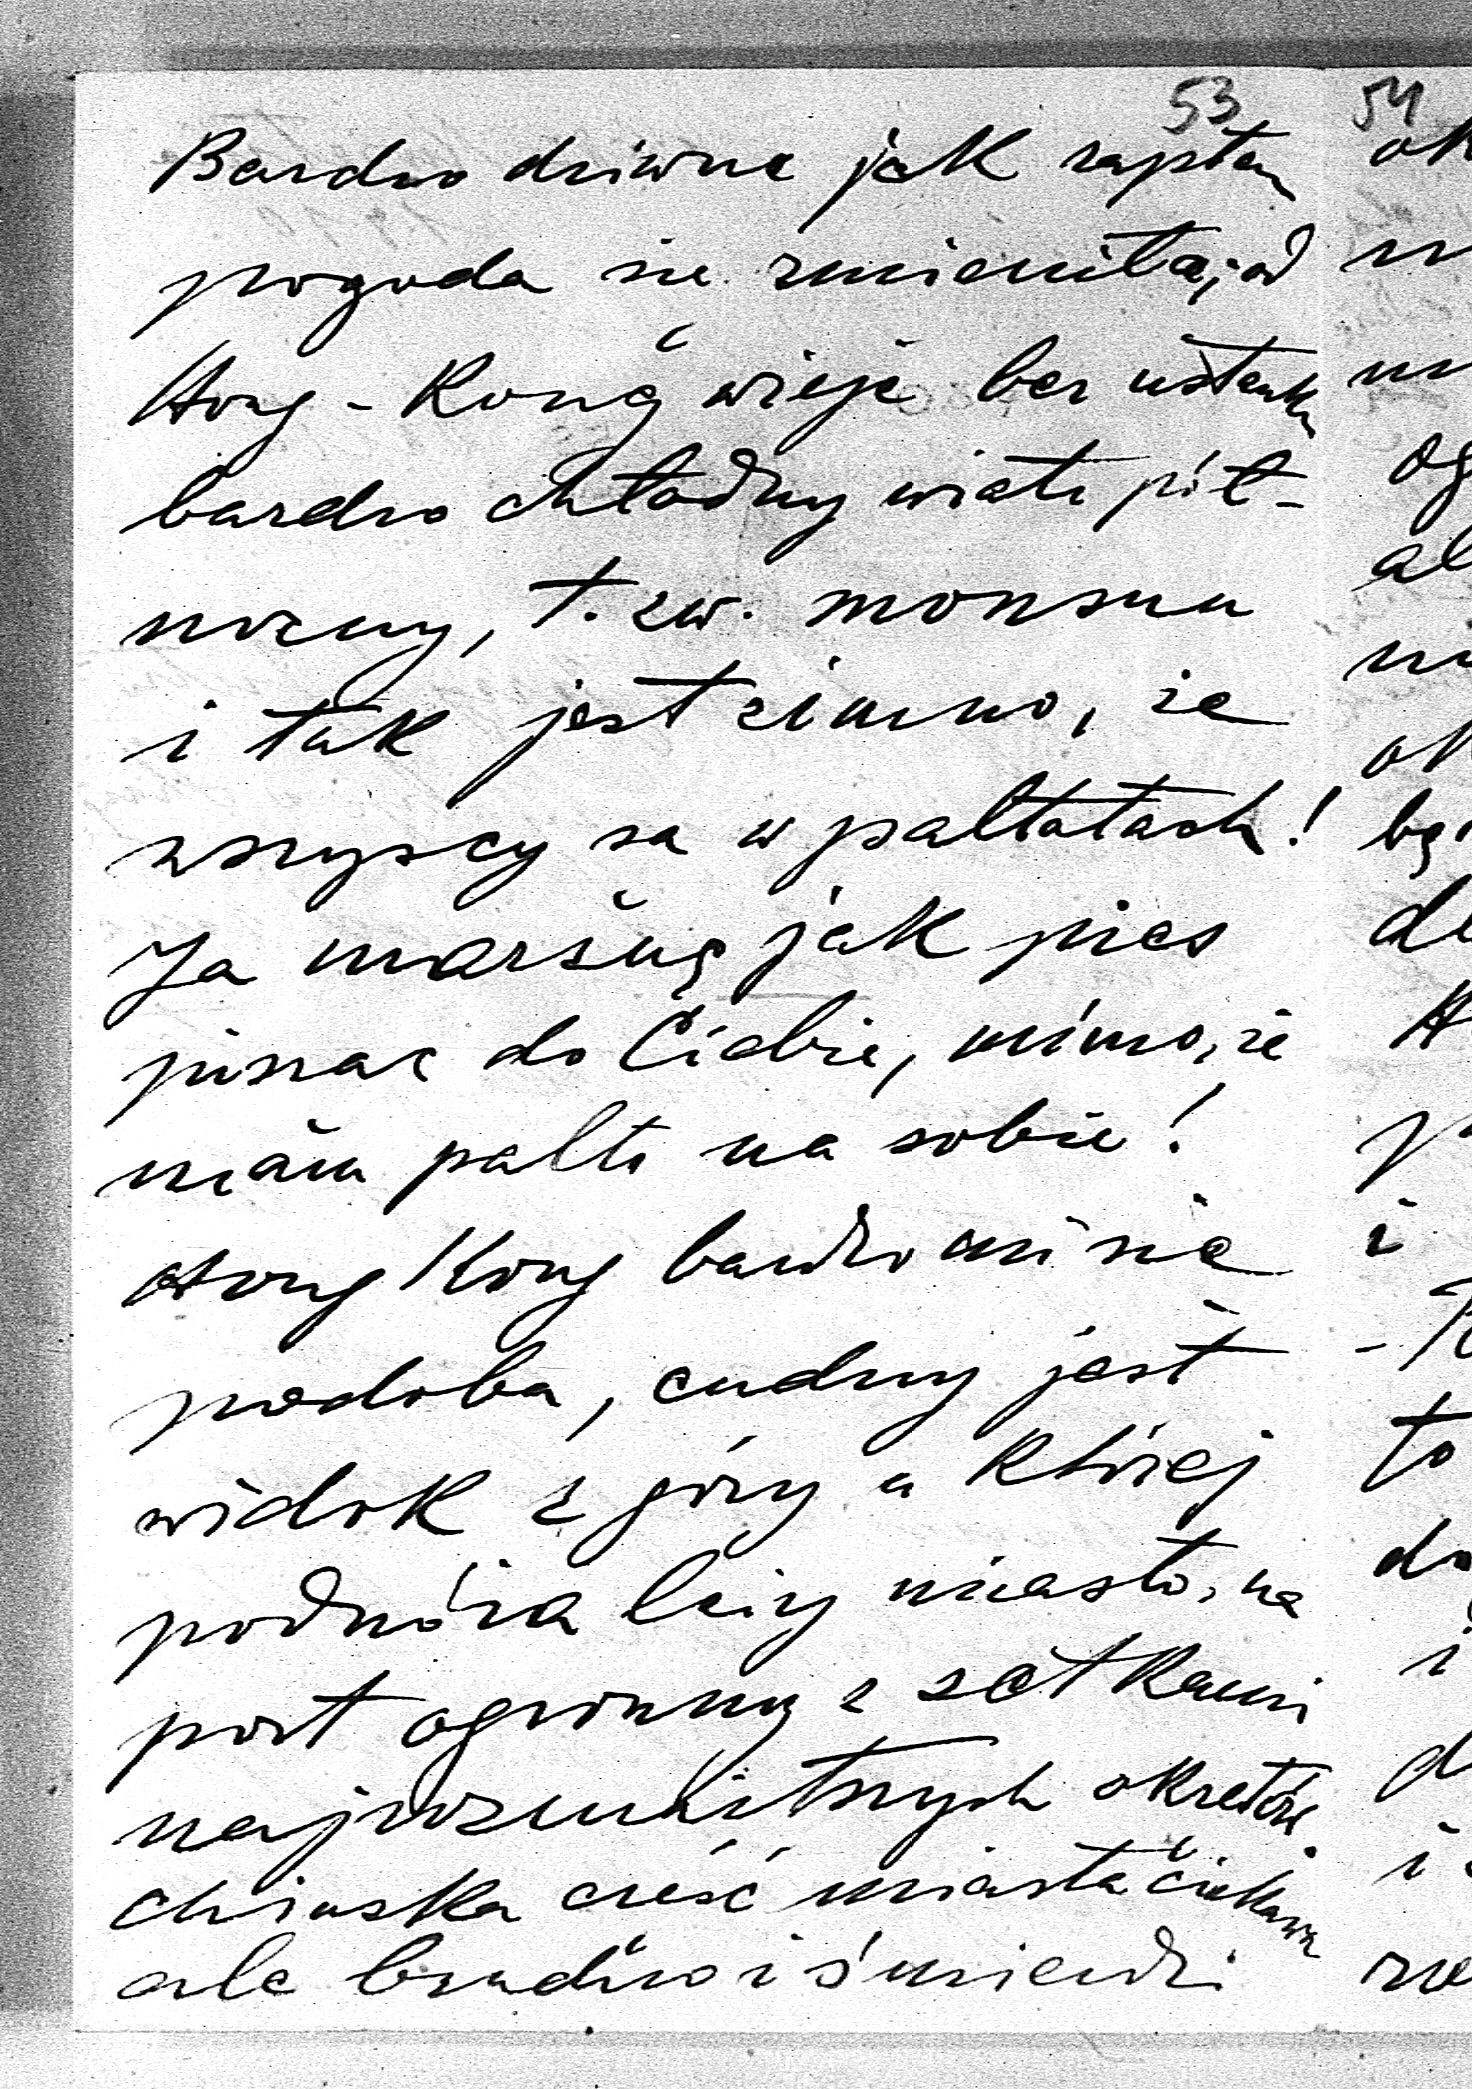 53 54
Bardzo dziwne jak raptem
pogoda się zmieniła; od
Hong-Kong wieje bez ustanku
bardzo chłodny wiatr pół-
nocny, t. zw. monsun
i tak jest zimno, że
wszyscy są w paltotach!
Ja marznę jak pies
pisząc do Ciebie, mimo, że
mam palto na sobie!
Hong Kong bardzo mi się
podoba, cudny jest
widok z góry u której
podnóża leży miasto, na
port ogromny z setkami
najrozmaitszych okrętów.
chińska część miasta ciekawa
ale brudno i śmierdzi